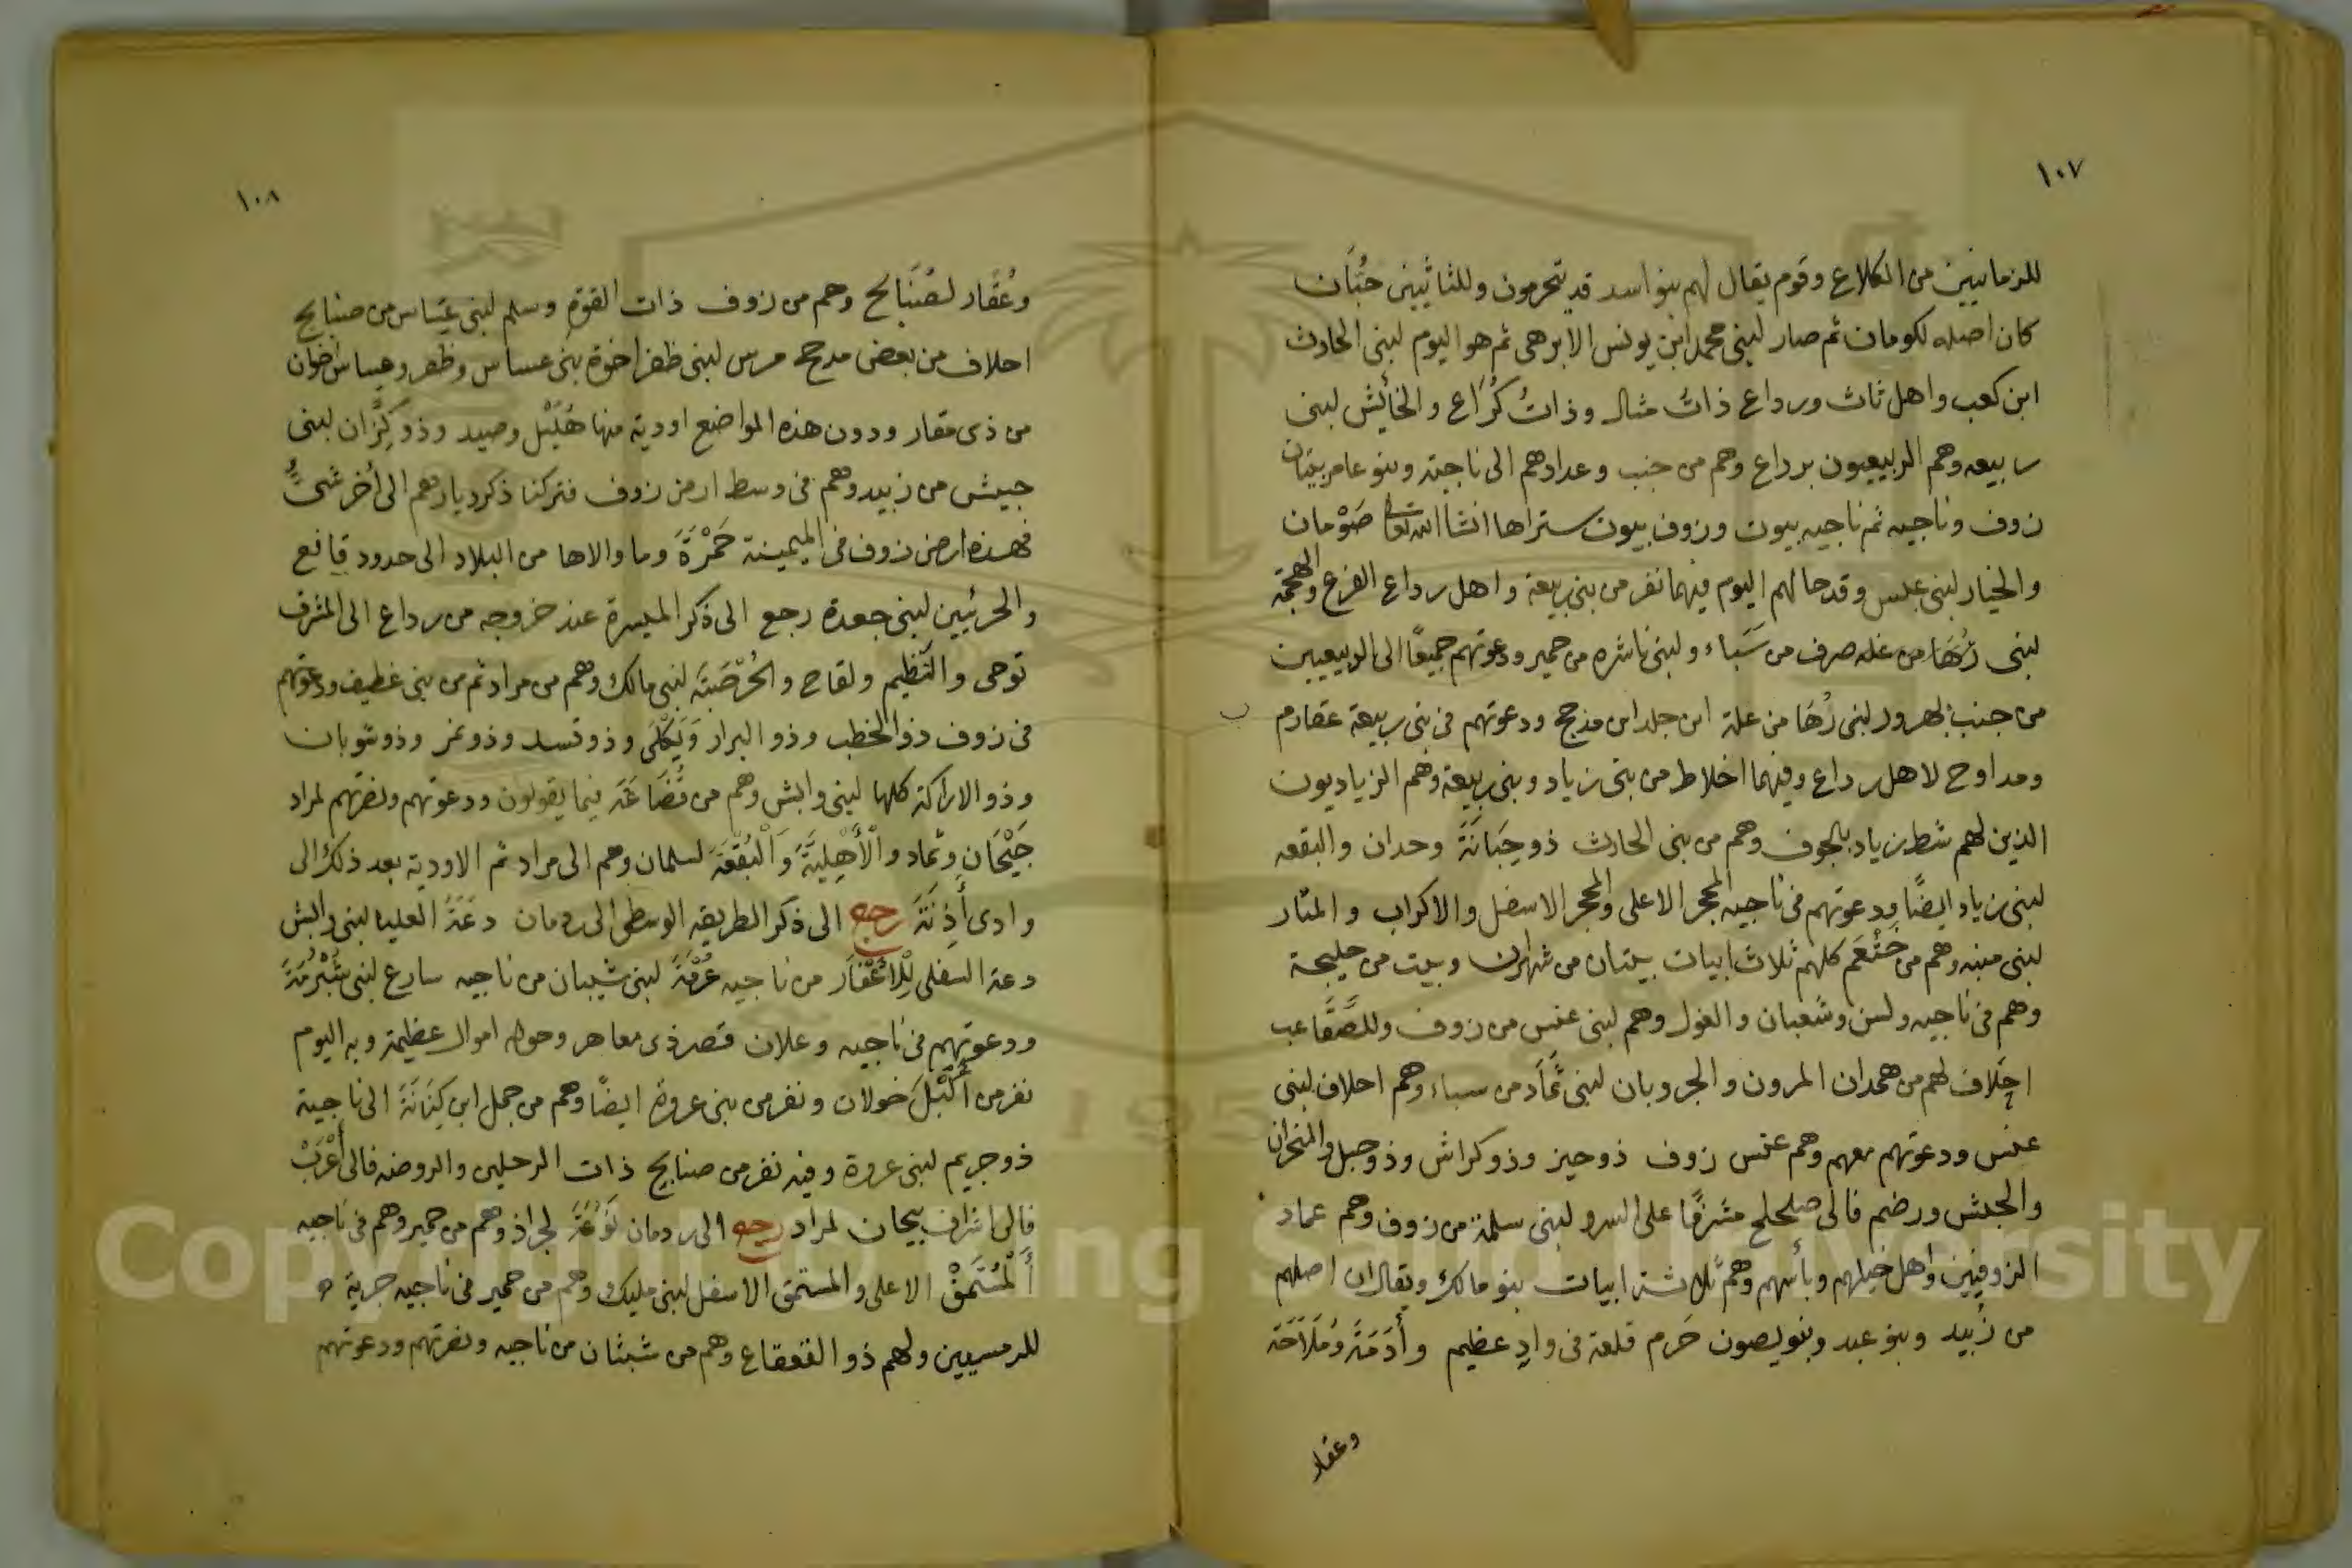 ١٠٧
للزمانيين من الكلاع وقوم يقال لهم بنو اسد قد يتحرمون وللثاثيين حبّان
كان اصله لكومان ثم صار لبنى محمد ابن يونس الابرهى ثم هو اليوم لبنى الحادث
ابن كعب واهل ثات ورداع ذاتُ مثال وذاتُ كُرَاع والخائِش لبنى
ربيعه وهم الربيعيون برداع وهم من جنب وعدادهم الى ناجية وبنو عامر بيتان
زوف وناجيه ثم ناجيه بيوت وزوف بيوت ستراها انشا الله تعالى صَوْمان
والخيار لبنى عبس وقد حالهم اليوم فيهما نفر من بنى ربيعة واهل رداع الفرع والهجمة
لبنى رُهَا من عله صرف من سَبَاء ولبنى ناشره من حمير ودعوتهم جميعًا الى الربيعيين
من جنب لهرور لبنى رُهَا من علة ابن جلد ابن مذحج ودعوتهم فى بنى ربيعة عقارم
ومداوح لاهل رداع وفيهما اخلاط من بنى زياد وبنى ربيعة وهم الزياديون
الذين لهم شط زياد بالجوف وهم من بنى الحادث ذو جِبَانَةَ وحدان والبقعه
لبنى زياد ايضًا ودعوتهم فى ناجيه المجر الاعلى والمجر الاسفل والاكراب والمثار
لبنى منبه وهم من خَثْعَم كلهم ثلاث ابيات بيتان من شهران وبيت من حليحة
وهم فى ناجيه ولسن وشعبان والغول وهم لبنى عنس من زوف وللصَّقَاعب
احلاف لهم من همدان المرون والجروبان لبنى ثمَاد من سباء وهم احلاف لبنى
عنس ودعوتهم معهم وهم عنس زوف ذو حيز وذو كراش وذو حبل والمنحران
والجلش ورضم فالى صلحلح مشرفًا على السرو لبنى سلمة من زوف وهم عماد
الزوفيين واهل خيلهم وبأسهم وهم ثلاثة ابيات بنو مالك ويقال ان اصلهم
من زُبيد وبنو عبد وبنو يصون حَرم قلعة فى وادٍ عظيم وأدَمَةَ وَمَلَاحَة
وعقار
١٠٨
وعُقَار لصُنَابح وهم من زوف ذات القوة وسلم لبنى عساس من صنابح
احلاف من بعض مدحج مرس لبنى ظفر اخوة بنى عساس وظفر وعساس اخوان
من ذى مقار ودون هذه المواضع اودية منها هُلَيْل وصيد وذو كِزَّان لبنى
جيش من زبيد وهم فى وسط ارض زوف فتركنا ذكر ديارهم الى أخر شىءٍ
فهذه ارض زوف فى الميمينة حَمْرَةَ وما والاها من البلاد الى حدود قانع
والحرئيين لبنى جعدة رجع الى ذكر الميسرة عند خروجه من رداع الى المشرق
توحى والنَظيم ولقاح والخُرْصَبَة لبنى مالك وهم من مراد ثم من بنى غطيف ودعوتهم
فى زوف ذو الخطب وذو البرار وَيَكْلَى وذو قسد وذو نمر وذو شوبان
وذو الاراكة كلها لبنى وابش وهم من قُضَاعَة فيما يقولون ودعوتهم ونصرتهم لمراد
جَيْحَان وثماد والْأَهِليَّةَ وَالْبُقْعَة لسلمان وهم الى مراد ثم الاودية بعد ذلك الى
وادى أَذِنَةَ رجع الى ذكر الطريقه الوسطى الى ردمان دعَةَ العليا لبنى وابش
دعة السفلى لِلْاَغْفَار من ناجيه عُرْمَةَ لبنى شيبان من ناجيه سارع لبنى شُبْرُمَةَ
ودعوتهم فى ناجيه وعلان قصر ذى معاهر وحوله اموال عظيمة وبه اليوم
نفر من أكْبْلَ خولان ونفر من بنى عروة ايضًا وهم من جمل ابن كِنَانَةَ الى ناجية
ذو جريم لبنى عروة وفيه نفر من صنابح ذات الرحلين والروضه فالى أعْرَبْ
فالى اشراف بيحان لمراد رجع الى ردمان لوْعَةَ لجراذ وهم من حمير وهم فى ناجيه
اَلْمُسْتَمَقْ الاعلى والمستمق الاسفل لبنى مليك وهم من حمير فى ناجيه جرية
للرمسيين ولهم ذو القعقاع وهم من شبثان من ناجيه ونصرتهم ودعوتهم
Copyright © King Saud University